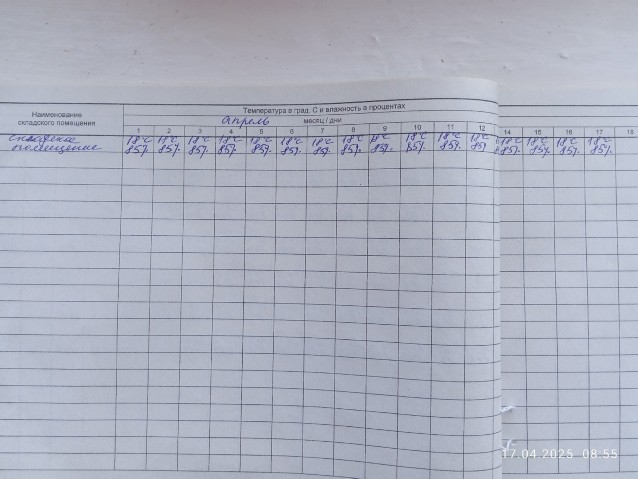 Температура в град. С и влажность в процентах
Наименование складского помещения
Апрель месяц / дни
1 2 3 4 5 6 7 8 9 10 11 12 14 15 16 17 18
складское 18°C 18°C 18°C 18°C 18°C 18°C 18°C 18°C 18°C 18°C 18°C 18°C 18°C 18°C 18°C 18°C
помещение 85% 85% 85% 85% 85% 85% 85% 85% 85% 85% 85% 85% 85% 85% 85% 85%
17.04.2025 08:55